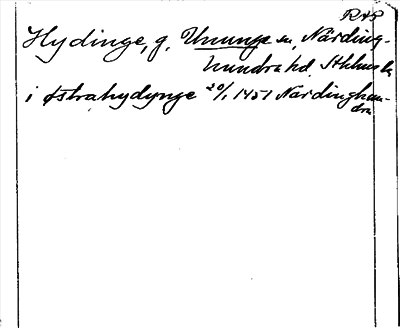 R A P
Hydinge, g. Ununge sn, Närding-
hundra hd. Sthlms l.
i østrahydynge 20/1 1451 Nærdinghun-
dra